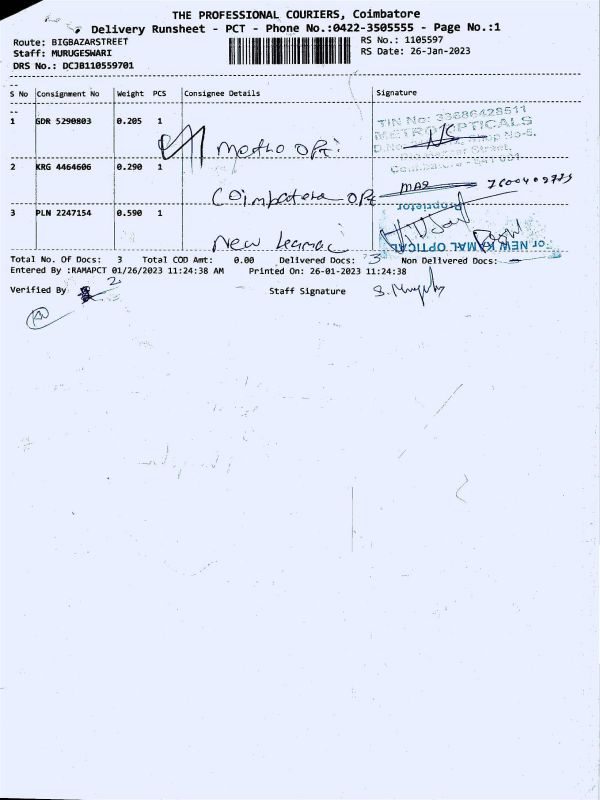 THE PROFESSIONAL COURIERS, Coimbatore
Delivery Runsheet - PCT - Phone No.:0422-3505555 - Page No.:1
Route: BIGBAZARSTREET RS No.: 1105597
Staff: MURUGESWARI RS Date: 26-Jan-2023
DRS No.: DCJB110559701
S No Consignment No Weight PCS Consignee Details Signature
1 GDR 5290803 0.205 1
TIN No: 33686428511
METRO OPTICALS
metro opti:
2 KRG 4464606 0.290 1
Coimbatore opt
Proprietor
3 PLN 2247154 0.590 1
New kamal
for NEW KAMAL OPTICAL
Total No. Of Docs: 3 Total COD Amt: 0.00 Delivered Docs: 3 Non Delivered Docs: -
Entered By :RAMAPCT 01/26/2023 11:24:38 AM Printed On: 26-01-2023 11:24:38
Verified By 2 Staff Signature